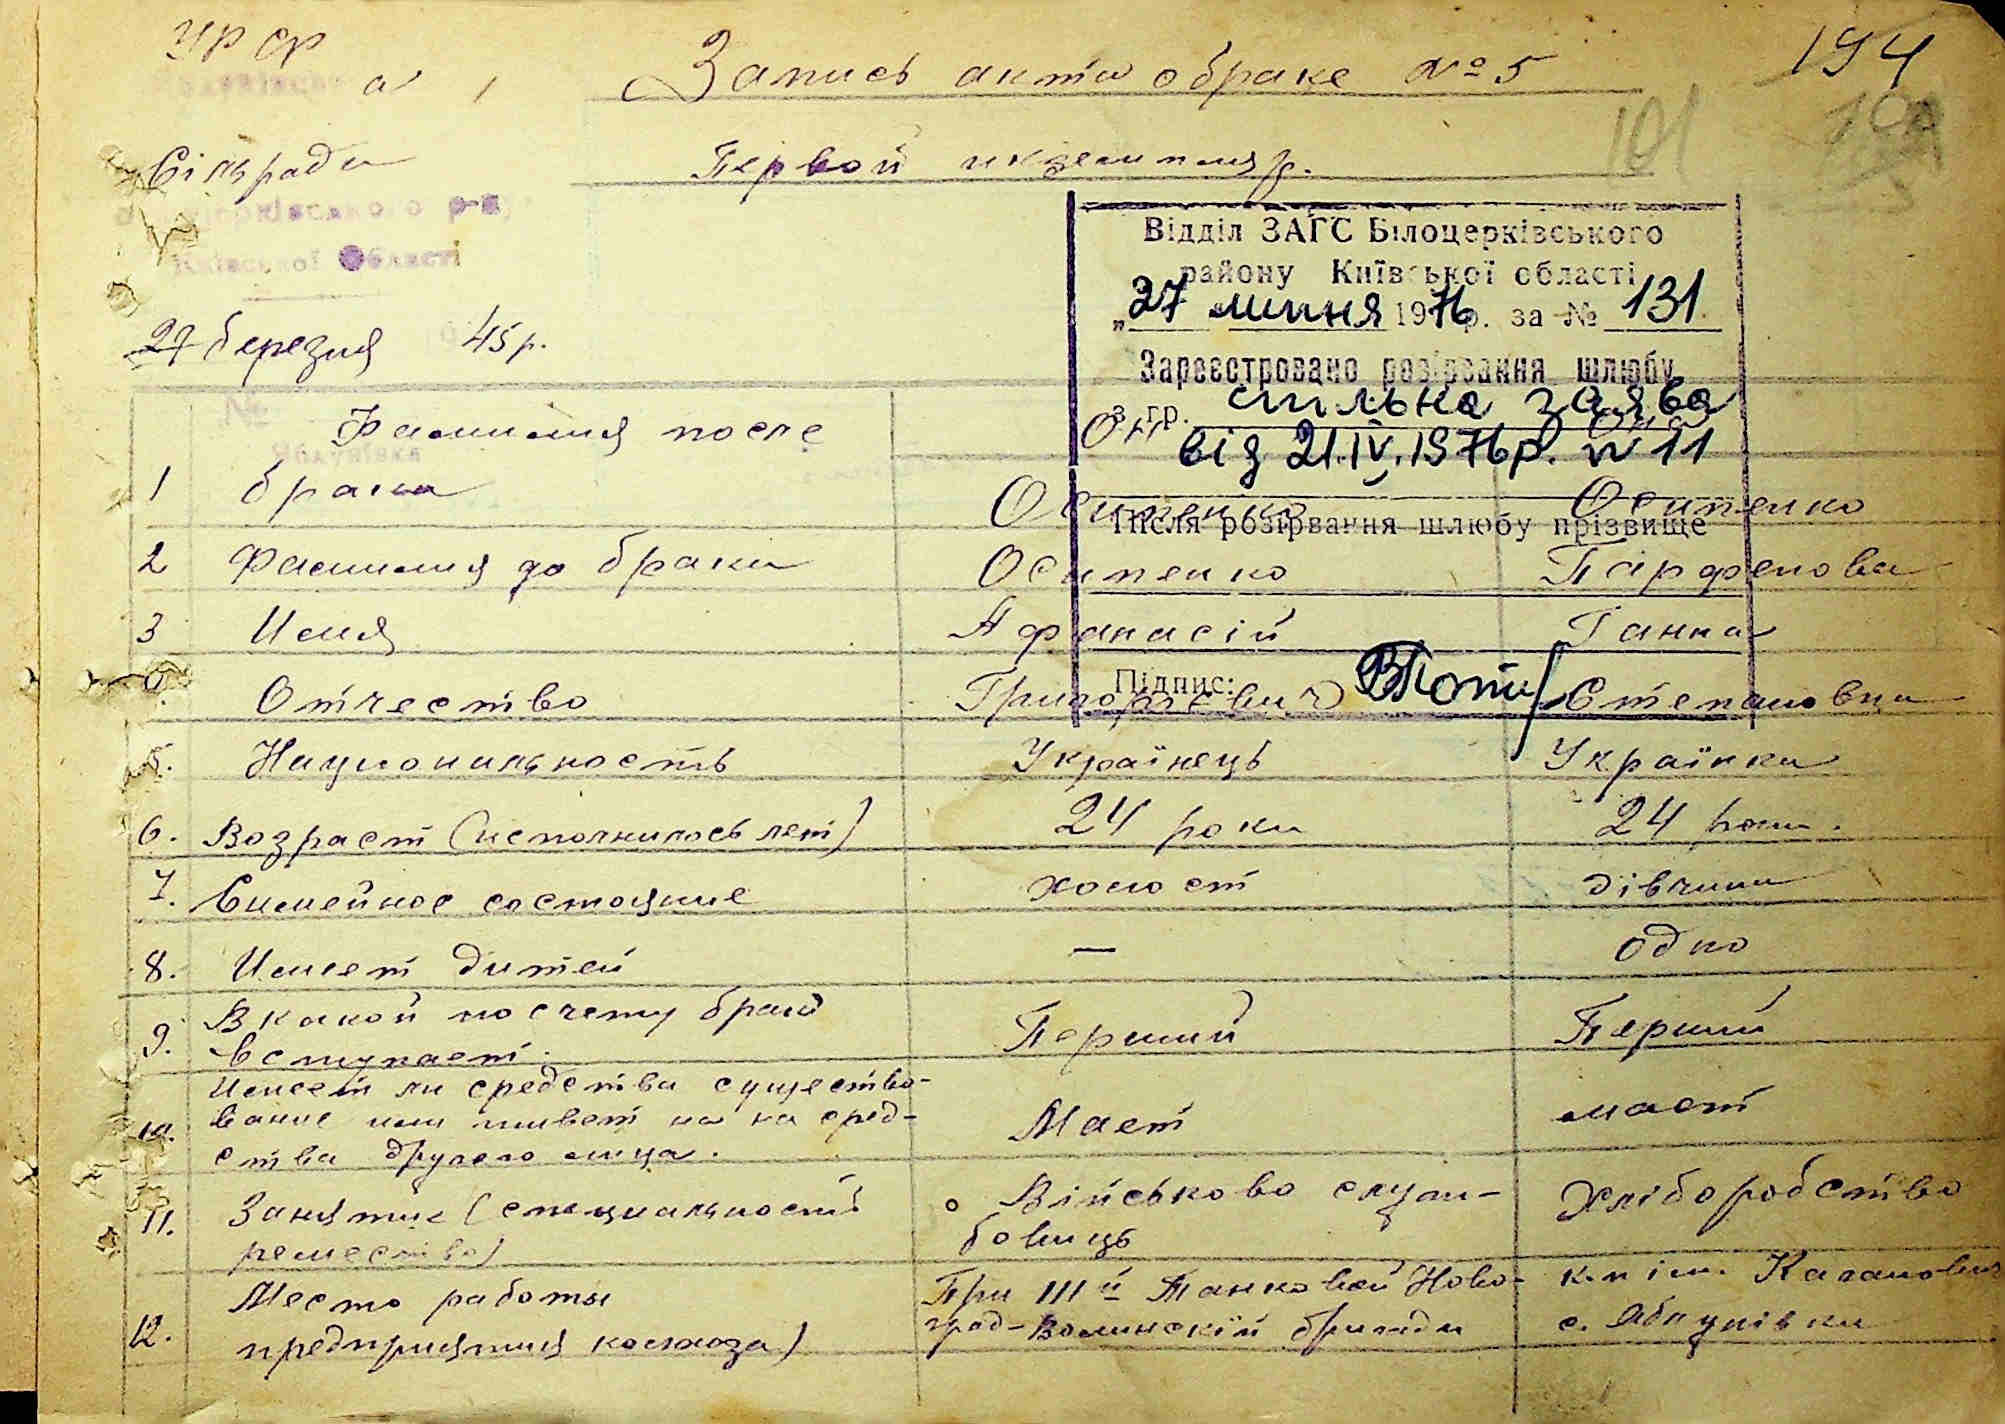 УРСР
Запись акта о браке № 5
194
101
Сільради
Первой икземпляр.
р-ну
Київської області
Відділ ЗАГС Білоцерківського
району Київської області
„27 липня 1976 р. за № 131
27 березня 45 р.
Зареєстровано розірвання шлюбу
з гр. спільна заява
від 21.IV.1976 р. № 11
Він Она
Фамилия после
1 брака Осипенко Осипенко
Після розірвання шлюбу прізвище
2 Фамилия до брака Осипенко Парфенова
3 Имя Афанасій Ганна
Підпис:
Отчество Григорьевич Степановна
5. Национальность Українець Українка
6. Возраст (исполнилось лет) 24 роки 24 роки.
7. Симейное состояние холост дівчина
8. Имеет дитей — одно
9. В какой по счету брак
вступает. Перший Перший
Имеет ли средства существо-
10. вание или живет на на сред- Мает мает
ства другого лица.
11. Занятие (специальность Військово служ- Хліборобство
ремесство) бовиць
Место работы При III й Танковой Ново- к-п ім. Каганович
12. предприятия колхоза) град-Волинскій бригади с. Яблунівки